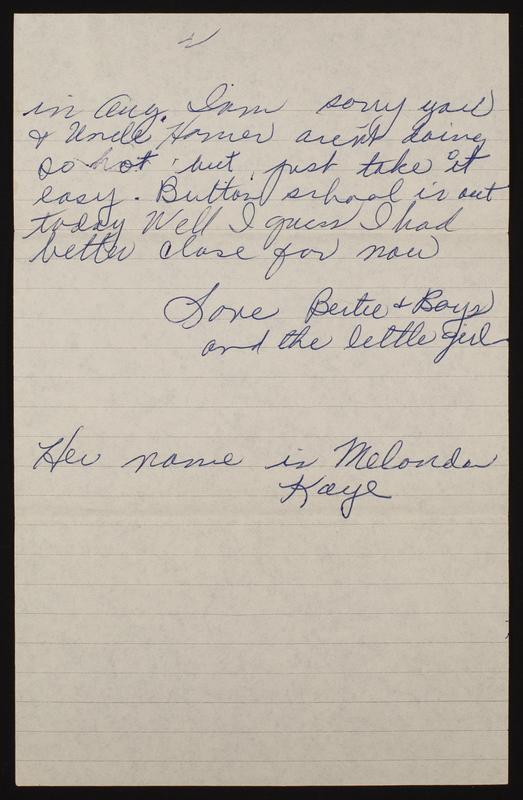 in Aug. I am sorry you
& Uncle Homer aren't doing
so hot but just take it
easy. Button school is out
today Well I guess I had
better close for now
Love Bertie & Boys
and the little girl
Her name is Melonda
Kaye